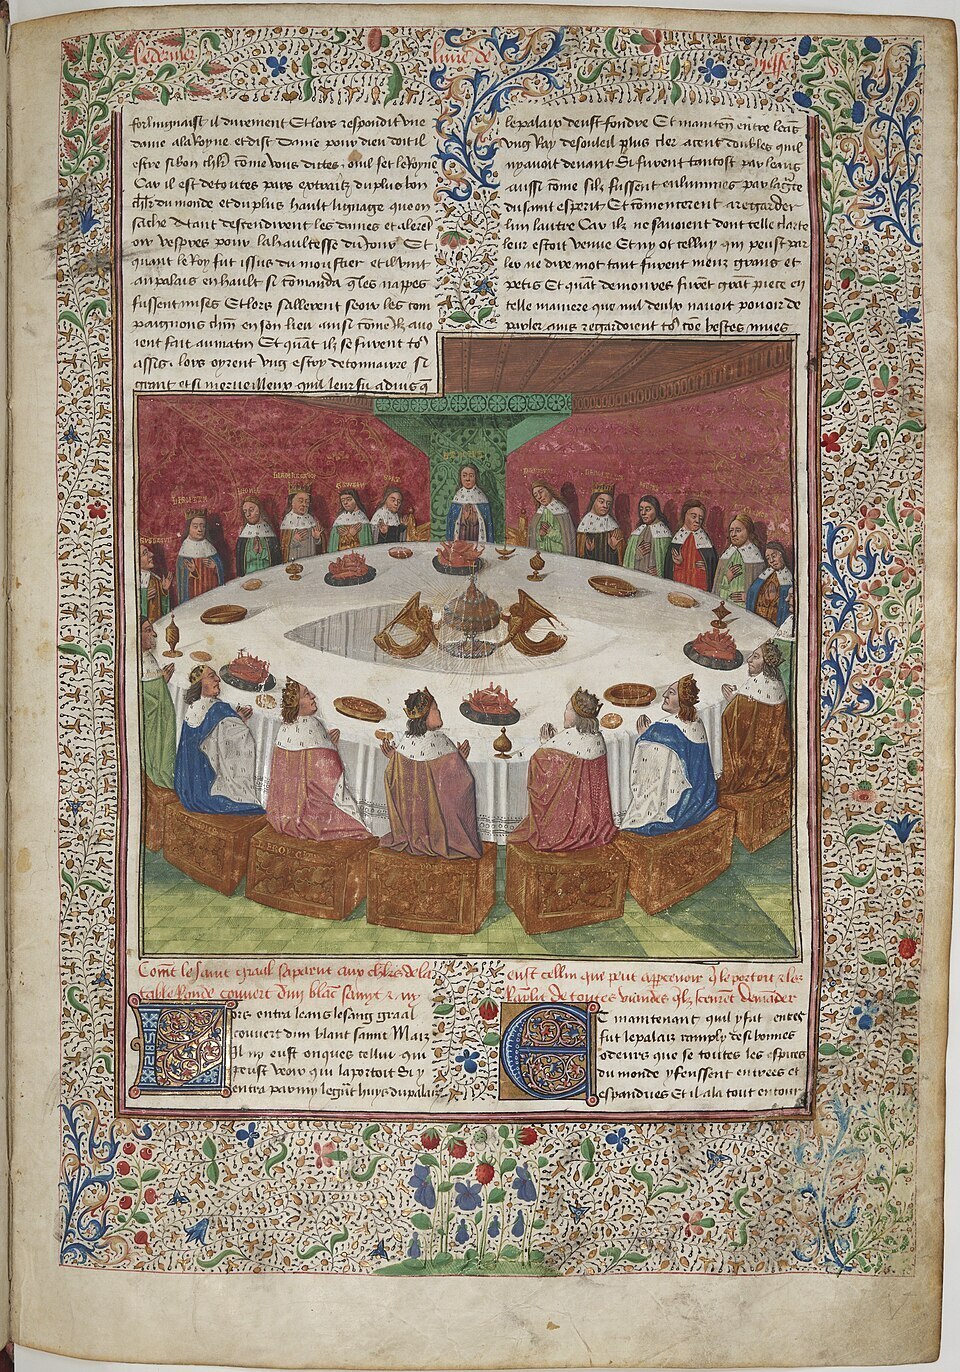 le dernier
liure de
messire
forlingnaist il durement Et lors respondit une
dame a la Royne et dist Dame pour dieu doit il
estre si bon chlr come vous dictes ouil fet le Royne
Car il est de toutes pars extraitz du plus bon
chlr du monde et du plus hault lignage que on
sache Atant descendirent les dames et aleret
oir vespres pour la haultesse du Jour Et
quant le Roy fut issus du moustier et il vint
au palais en hault si comanda q les nappes
fussent mises Et lors sallerent seoir les com
paignons chun en son lieu ainsi come ilz auo
ient fait au matin Et quat ilz se furent to9
assis lors oyrent ung estoy de tonnairre si
grant et si merueilleux quil leur fu aduis q
le palaix deust fondre Et mainten entre leas
ung Ray de souleil plus cler a cent doubles quil
nyauoit deuant Si furent tantost par leans
aussi come silz fussent enlumines par la gce
du saint esperit Et comencerent a regarder
lun lautre Car ilz ne sauoient dont telle clarte
leur estoit venue Et ny ot celluy qui peust par
ler ne dire mot tant furent menz grans et
petis Et quat demoures furet grat piece en
telle maniere que nul deulx nauoit pouoir de
parler ains regardoient to9 coe bestes mues
Comt le saint graal saparut aux chlrs de la
table Ronde couuert dun blac samit z ny
eust cellui que peut apperceuoir q le portoit z les
Raplit de toutes viandes qlz sceuret demader
Lors entra leans le sang graal
couuert dun blant samit Maiz
Il ny eust onques cellui qui
peust veoir qui la portoit Si y
entra par my le grat huys du palaiz
Et maintenant quil y fut entre
fut le palaix raemply de si bonnes
odeurs que se toutes les espices
du monde y feussent entrees et
espandues Et il ala tout entour